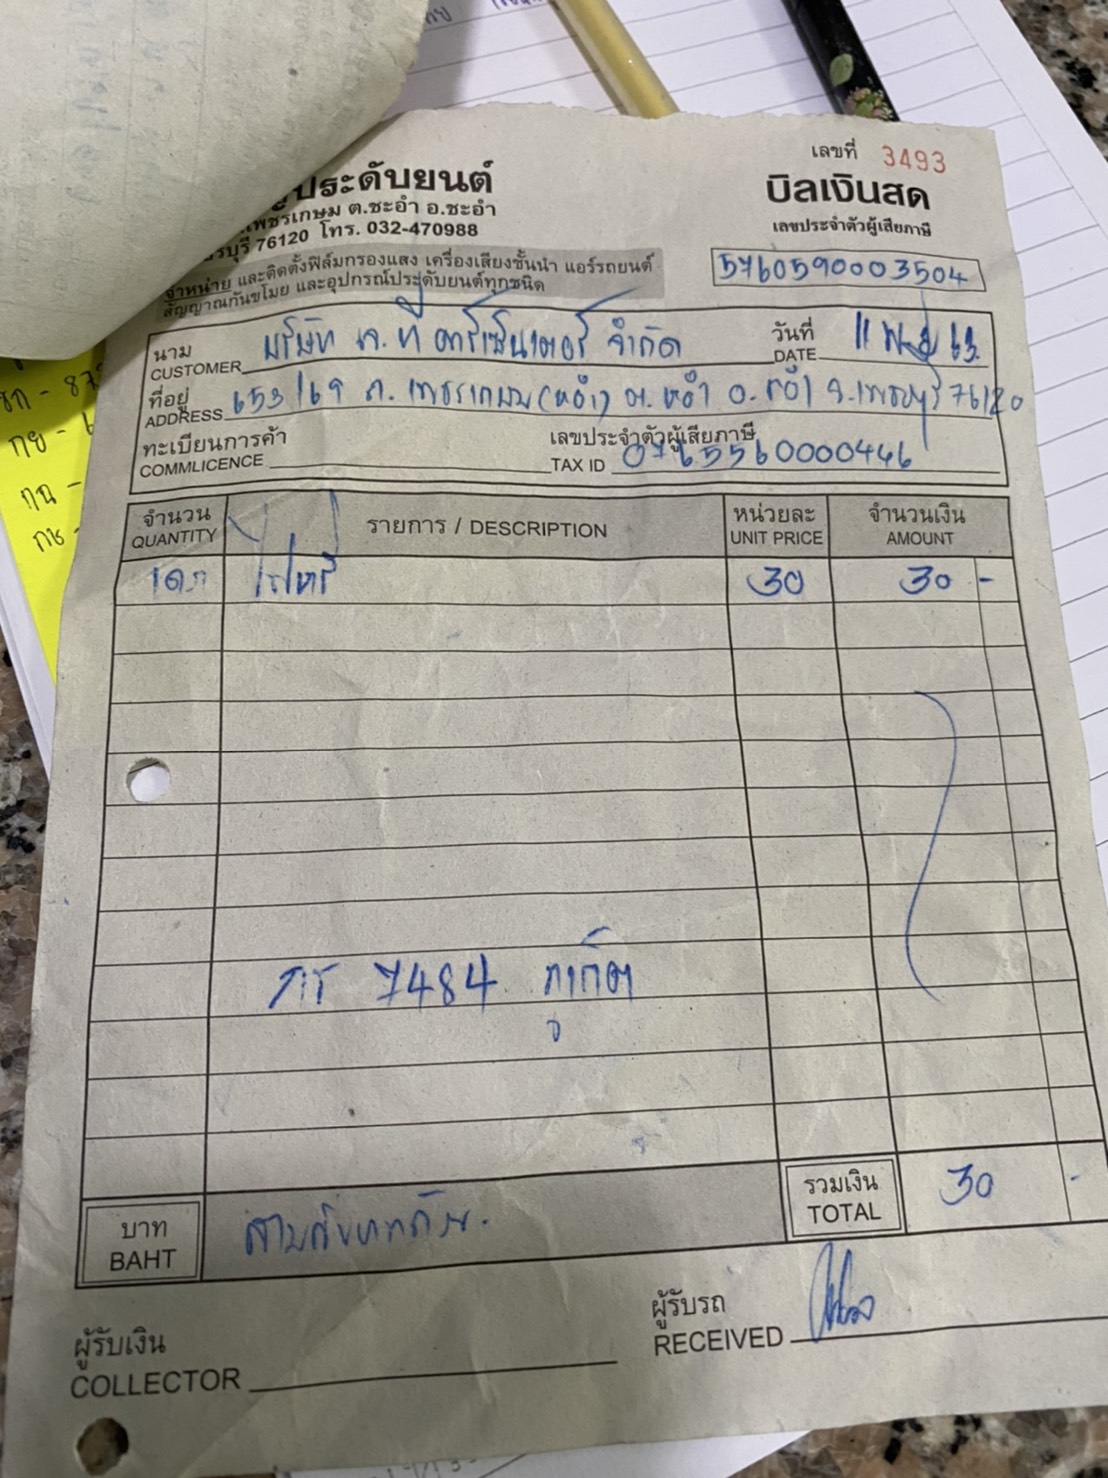 เลขที่ 3493
ประดับยนต์
บิลเงินสด
เพชรเกษม ต.ชะอำ อ.ชะอำ
เลขประจำตัวผู้เสียภาษี
76120 โทร. 032-470988
5760590003504
จำหน่าย และติดตั้งฟิล์มกรองแสง เครื่องเสียงชั้นนำ แอร์รถยนต์
สัญญาณกันขโมย และอุปกรณ์ประดับยนต์ทุกชนิด
นาม บริษัท เจ.ที คาร์เซ็นเตอร์ จำกัด วันที่ 11 พ.ย 63
CUSTOMER DATE
ที่อยู่ 653/69 ถ. เพชรเกษม 76120
ADDRESS
ทะเบียนการค้า เลขประจำตัวผู้เสียภาษี
COMMLICENCE TAX ID 0765560000446
จำนวน รายการ / DESCRIPTION หน่วยละ จำนวนเงิน
QUANTITY UNIT PRICE AMOUNT
30 30 -
7484 ภูเก็ต
รวมเงิน 30 -
TOTAL
บาท สามสิบบาทถ้วน.
BAHT
ผู้รับเงิน ผู้รับรถ
COLLECTOR RECEIVED